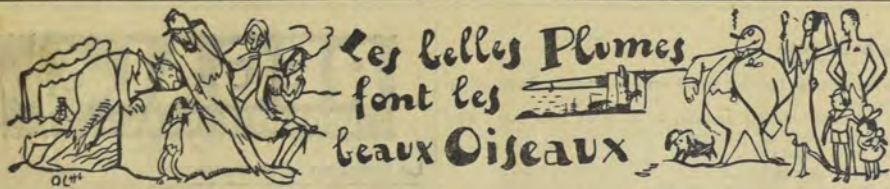 Les belles Plumes
font les
beaux Oiseaux